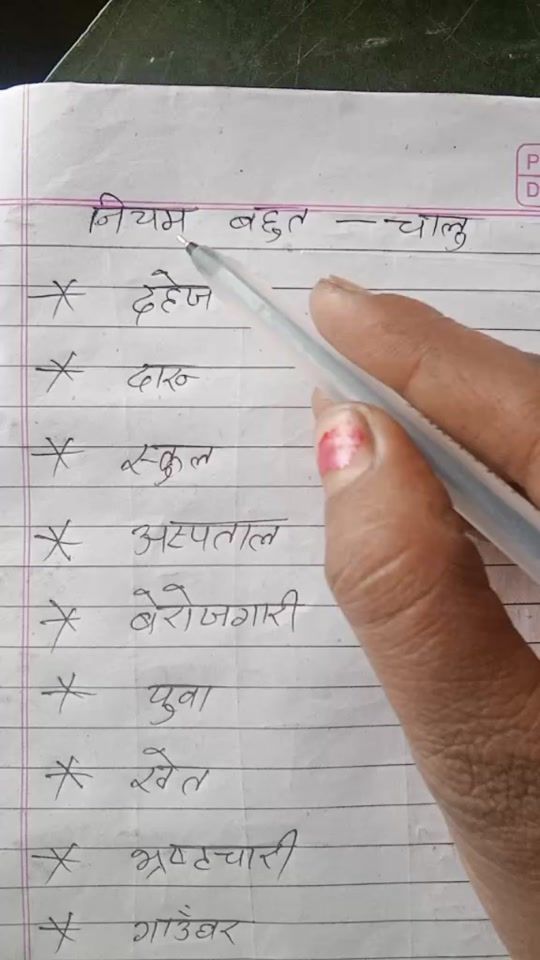 नियम बहुत - चालु
* दहेज
* दारू
* स्कुल
* अस्पताल
* बेरोजगारी
* युवा
* खेत
* भ्रष्टचारी
* गाउँघर
P
D